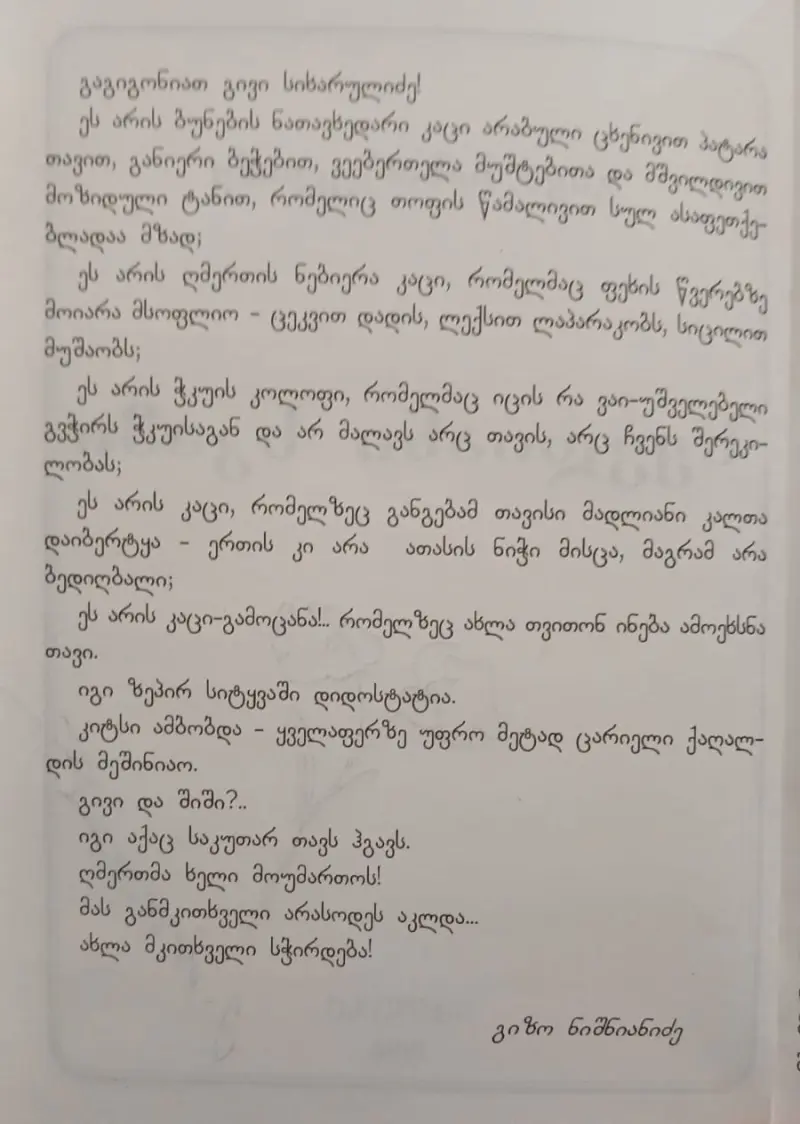 გაგიგონიათ გივი სიხარულიძე!
ეს არის ბუნების ნათავხედარი კაცი არაბული ცხენივით პატარა
თავით, განიერი ბეჭებით, ვეებერთელა მუშტებითა და მშვილდივით
მოზიდული ტანით, რომელიც თოფის წამალივით სულ ასაფეთქე-
ბლადაა მზად;
ეს არის ღმერთის ნებიერა კაცი, რომელმაც ფეხის წვერებზე
მოიარა მსოფლიო - ცეკვით დადის, ლექსით ლაპარაკობს, სიცილით
მუშაობს;
ეს არის ჭკუის კოლოფი, რომელმაც იცის რა ვაი-უშველებელი
გვჭირს ჭკუისაგან და არ მალავს არც თავის, არც ჩვენს შერეკი-
ლობას;
ეს არის კაცი, რომელზეც განგებამ თავისი მადლიანი კალთა
დაიბერტყა - ერთის კი არა ათასის ნიჭი მისცა, მაგრამ არა
ბედიღბალი;
ეს არის კაცი-გამოცანა!.. რომელზეც ახლა თვითონ ინება ამოეხსნა
თავი.
იგი ზეპირ სიტყვაში დიდოსტატია.
კიტსი ამბობდა - ყველაფერზე უფრო მეტად ცარიელი ქაღალ-
დის მეშინიაო.
გივი და შიში?..
იგი აქაც საკუთარ თავს ჰგავს.
ღმერთმა ხელი მოუმართოს!
მას განმკითხველი არასოდეს აკლდა...
ახლა მკითხველი სჭირდება!
გიზო ნიშნიანიძე